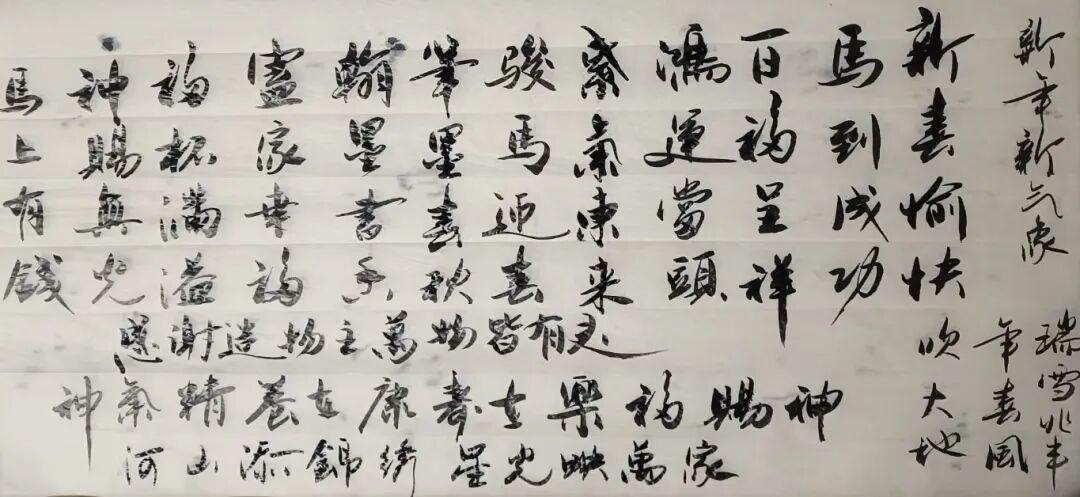 新年新气象
瑞雪兆丰
年春風
吹大地
新春愉快
馬到成功
百福呈祥
鴻運當頭
紫氣東来
駿馬迎春
筆墨春秋
翰墨書香
家幸福
福杯滿溢
神賜光
馬上有錢
感謝造物主萬物皆有灵
神賜福樂在壽康在養精氣神
河山添錦绣 星光映萬家